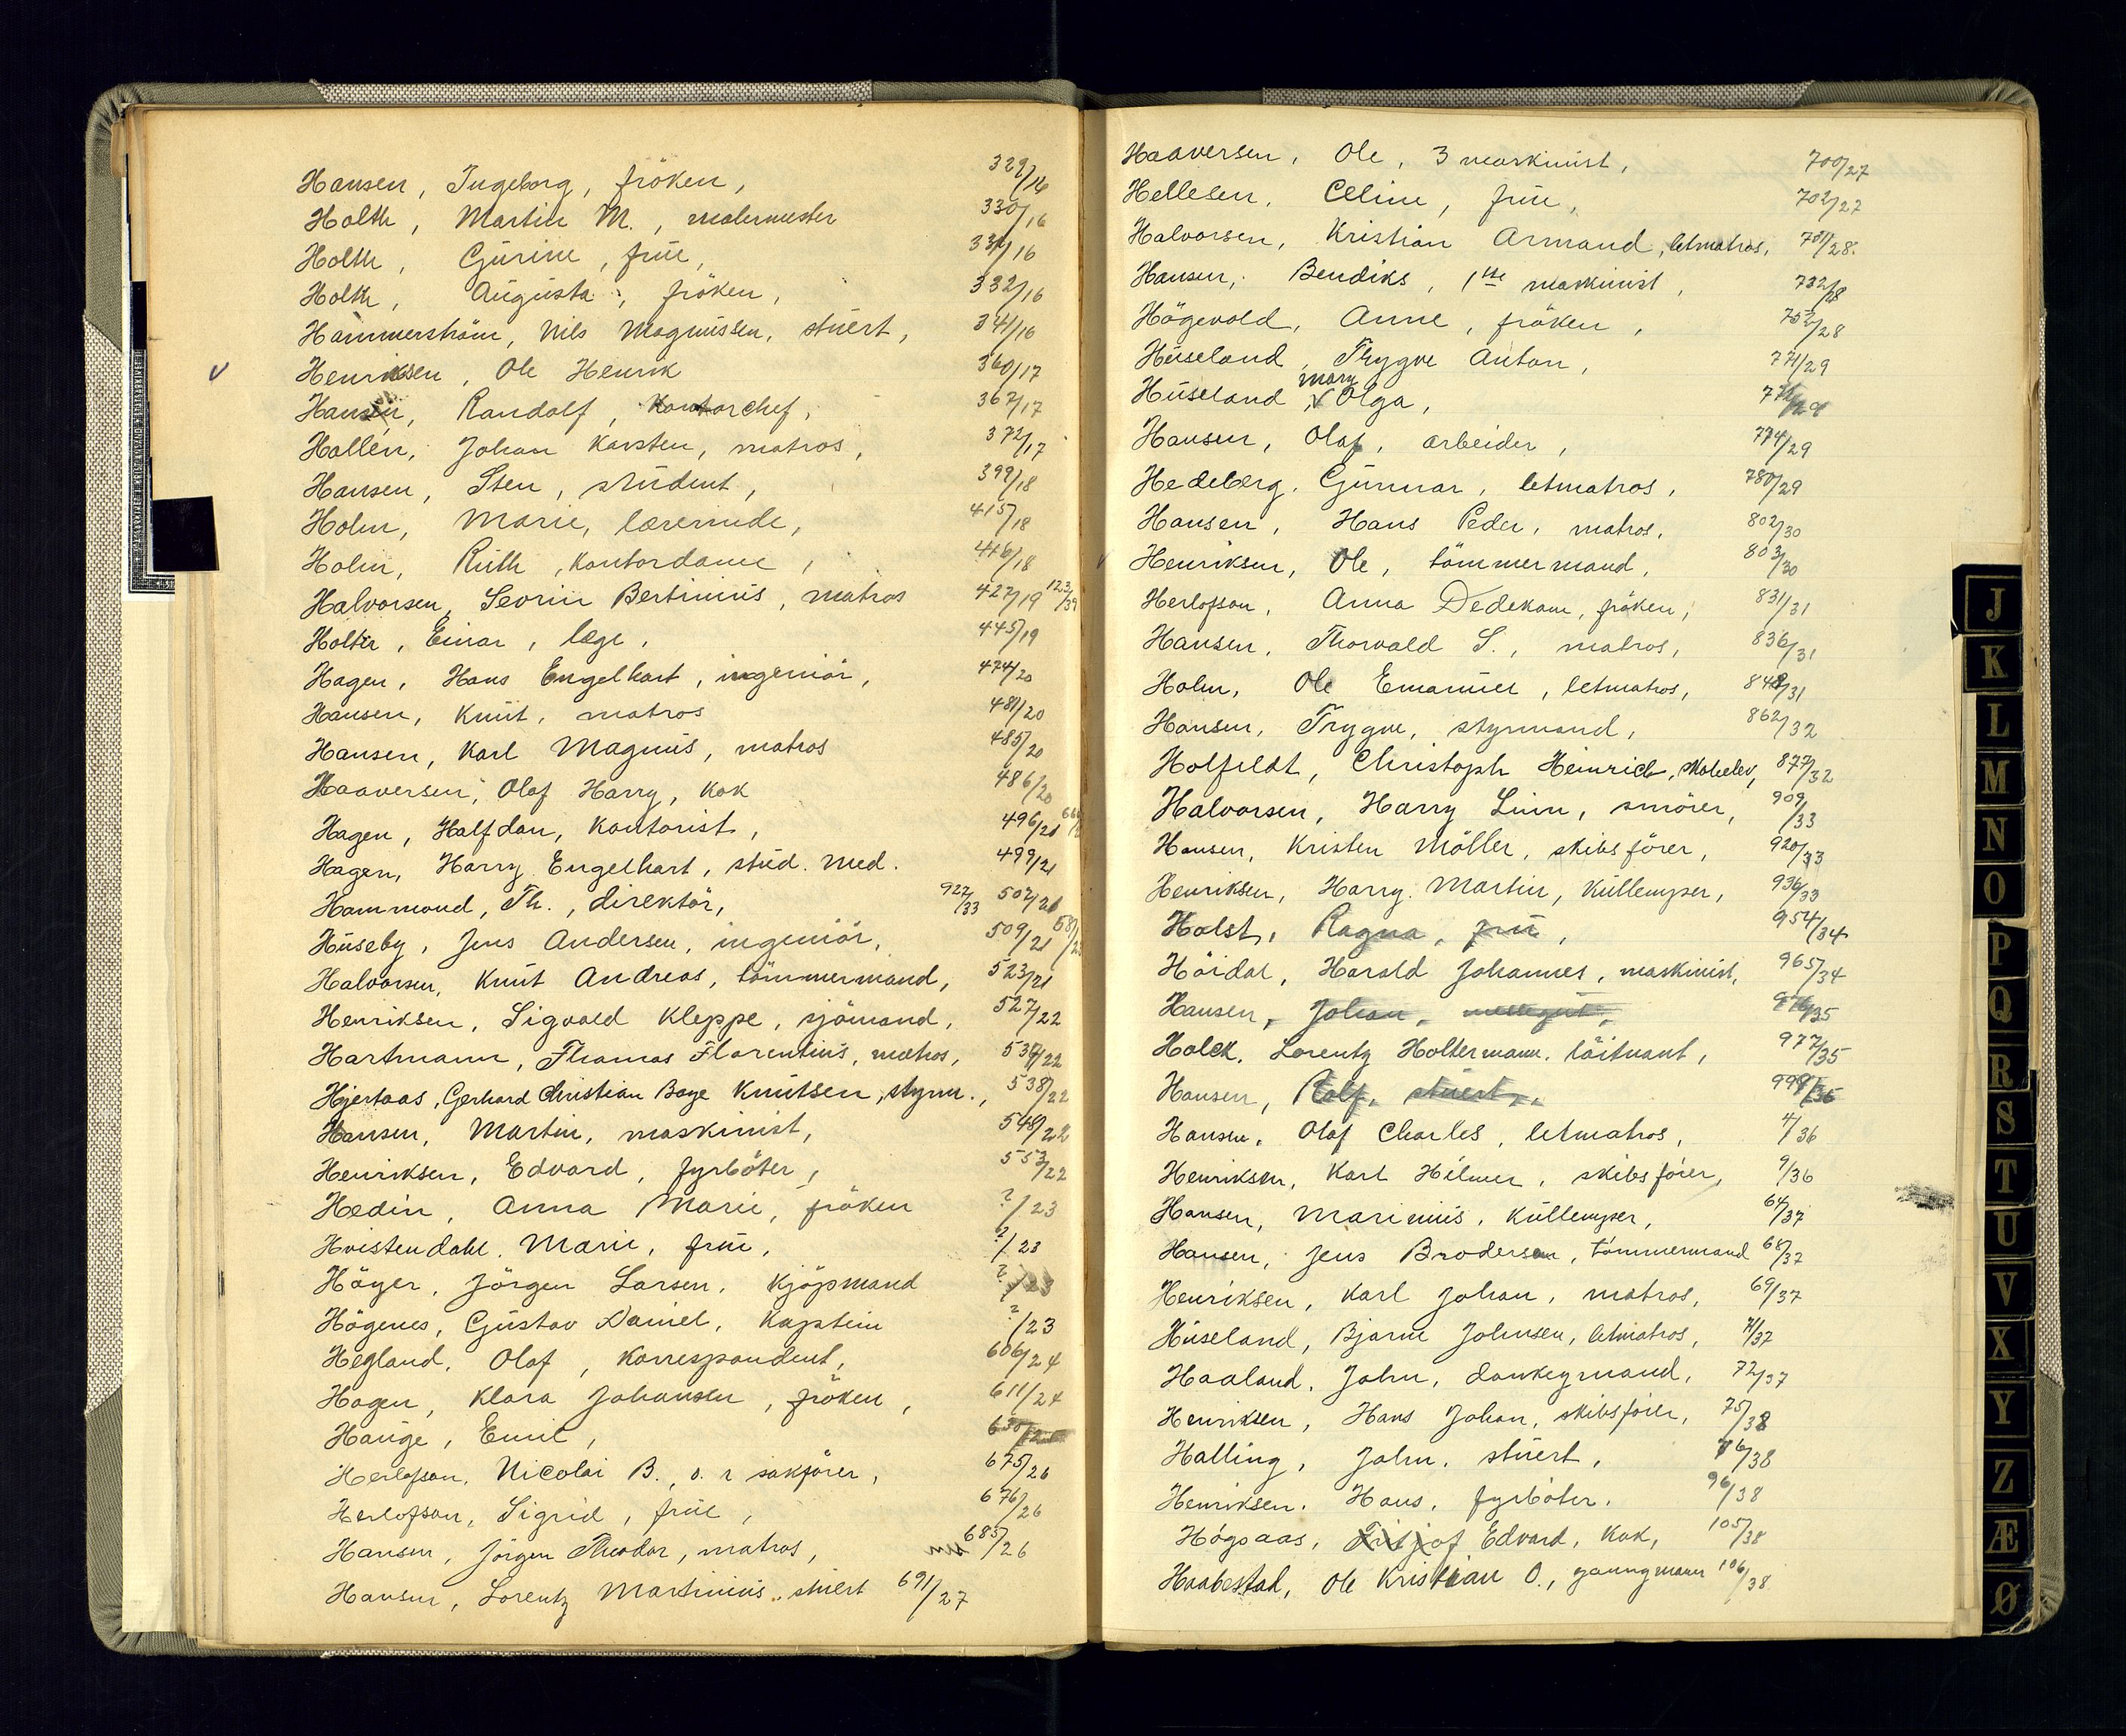 Hansen, Ingeborg, fröken, 329/16
Holth, Martin M., malermester 330/16
Holth, Gurine, frue, 331/16
Holth, Augusta, fröken, 332/16
Hammerström, Nils Magnussen, stuert, 341/16
Henriksen, Ole Henrik 360/17
Hansen, Randolf, Kontorchef, 367/17
Hallén, Johan Karsten, matros, 372/17
Hansen, Sten, student, 399/18
Holm, Marie, lærerinde, 415/18
Holm, Ruth, Kontordame, 416/18
Halvorsen, Severin Bertinius, matros 427/19 123/39
Holter, Einar, læge, 445/19
Hagen, Hans Engelhart, ingeniör, 474/20
Hansen, Knut, matros 481/20
Hansen, Karl Magnus, matros 485/20
Haaversen, Olaf Harry, Kok 486/20
Hagen, Halfdan, Kontorist, 496/21
Hagen, Harry Engelhart, stud. med. 499/21
Hammond, Th., direktör, 922/33 507/21
Huseby, Jens Andersen, ingeniör, 509/21
Halvorsen, Knut Andreas, tömmermand, 523/21
Henriksen, Sigvald Kleppe, sjömand, 527/22
Hartmann, Thomas Florentius, matros, 537/22
Hjertaas, Gerhard Christian Boye Knutsen, styrm., 538/22
Hansen, Martin, maskinist, 548/22
Henriksen, Edvard, fyrböter, 553/22
Hedin, Anna Marie, fröken ?/23
Hvistendahl, Marie, frue, ?/23
Höyer, Jörgen Larsen, Kjöpmand ?/23
Högenes, Gustav Daniel, Kaptein ?/23
Hegland, Olaf, Korrespondent, 606/24
Hagen, Klara Johansen, fröken, 611/24
Hauge, Emil,
Herlofson, Nicolai B. o. r sakförer, 675/26
Herlofson, Sigrid, frue, 676/26
Hansen, Jörgen Theodor, matros, 685/26
Hansen, Lorentz Martinius, stuert 691/27
Haaversen, Ole, 3 maskinist, 700/27
Hellesen, Celine, frue, 702/27
Halvorsen, Kristian Armand, letmatros, 731/28.
Hansen, Bendiks, 1ste maskinist, 732/28
Högevold, Anne, fröken, 752/28
Huseland, Trygve Anton, 771/29
Huseland, Mary Olga, 772/29
Hansen, Olaf, arbeider, 774/29
Hedeberg, Gunnar, letmatros, 780/29
Hansen, Hans Peder, matros, 802/30
Henriksen, Ole, tömmermand, 803/30
Herlofson, Anna Dedekam, fröken, 831/31
Hansen, Thorvald S., matros, 836/31
Holm, Ole Emanuel, letmatros, 848/31
Hansen, Trygve, styrmand, 862/32
Holfeldt, Christoph Heinrich, Skoleelev, 877/32
Halvorsen, Harry Linn, smörer, 909/33
Hansen, Kristen Möller, skibsförer, 920/33
Henriksen, Harry Martin, Kullemper, 936/33
Holst, Ragna, frue, 954/34
Höidal, Harald Johannes, maskinist, 965/34
Hansen, Johan, messegut, 976/35
Holck, Lorentz Holtermann, löitnant, 977/35
Hansen, Rolf, stuert, 999/36
Hansen, Olaf Charles, letmatros, 4/36
Henriksen, Karl Hilmer, skibsförer, 9/36
Hansen, Marinius, Kullemper, 64/37
Hansen, Jens Brodersen, tömmermand 68/37
Henriksen, Karl Johan, matros, 69/37
Huseland, Bjarne Johnsen, letmatros, 71/37
Haaland, John, donkeymand, 72/37
Henriksen, Hans Johan, skibsförer, 75/38
Halling, John, stuert, 76/38
Henriksen, Hans, fyrböter, 96/38
Högsaas, Fritjof Edvard, Kok, 105/38
Haabestad, Ole Kristian O., youngmann 106/38
J
K
L
M
N
O
P
Q
R
S
T
U
V
X
Y
Z
Æ
Ø